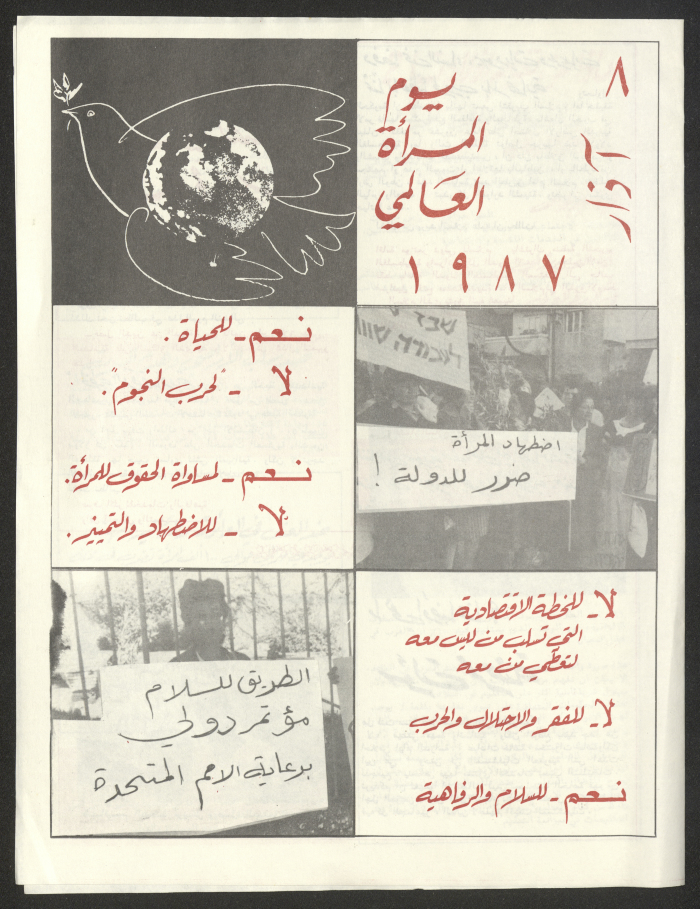 ٨ آذار
يوم
المرأة
العالمي
١٩٨٧
نعم - للحياة .
لا - "لحرب النجوم" .
نعم - لمساواة الحقوق للمرأة.
لا - للاضطهاد والتمييز .
اضطهاد المرأة
ضرر للدولة !
الطريق للسلام
مؤتمر دولي
برعاية الامم المتحدة
لا - للخطة الاقتصادية
التي تسلب من ليس معه
لتعطي من معه
لا - للفقر والاحتلال والحرب
نعم - للسلام والرفاهية